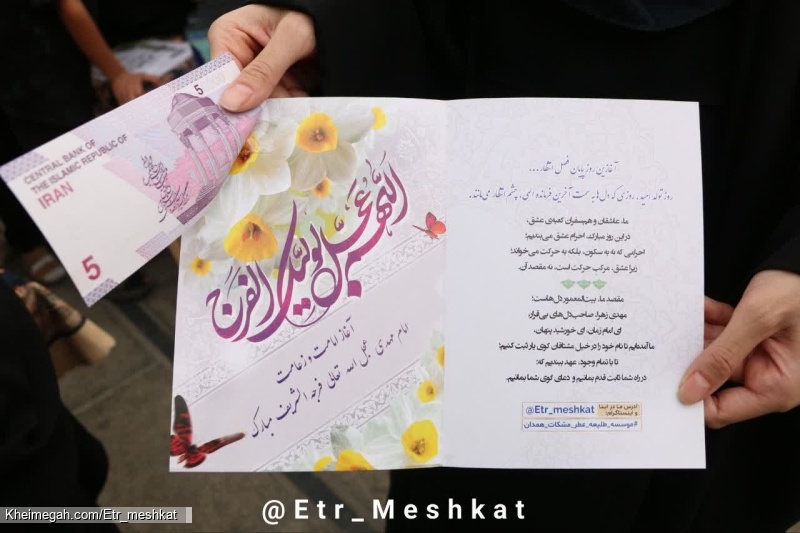 5
CENTRAL BANK OF
THE ISLAMIC REPUBLIC OF
IRAN
5
اللهم عجل لولیک الفرج
آغاز امامت و زعامت
امام مهدی عجل الله تعالی فرجه الشریف مبارک
آغازین روز پایان فصل انتظار....
روز تولد امید، روزی که دل‌ها به سمت آخرین فرستاده الهی، چشم انتظار می‌مانند.
ما، عاشقان و همسفران کعبه‌ی عشق،
در این روز مبارک، احرام عشق می‌بندیم؛
احرامی که نه به سکون، بلکه به حرکت می‌خواند؛
زیرا عشق، مرکب حرکت است، نه مقصد آن.
مقصد ما، بیت‌المعمور دل‌هاست؛
مهدی زهرا، صاحب‌دل‌های بی‌قرار،
ای امام زمان، ای خورشید پنهان،
ما آمده‌ایم تا نام خود را در خیل مشتاقان کوی یار ثبت کنیم؛
تا با تمام وجود، عهد ببندیم که:
در راه شما ثابت قدم بمانیم و دعای کوی شما بمانیم.
آدرس ما در ایتا
و اینستاگرام:
@Etr_meshkat
#موسسه_طلیعه_عطر_مشکات_همدان
@Etr_Meshkat
Kheimegah.com/Etr_meshkat